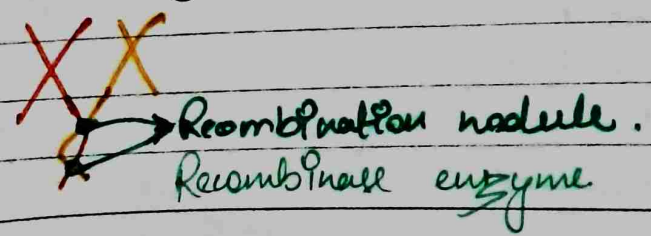 Recombination nodule.
Recombinase enzyme